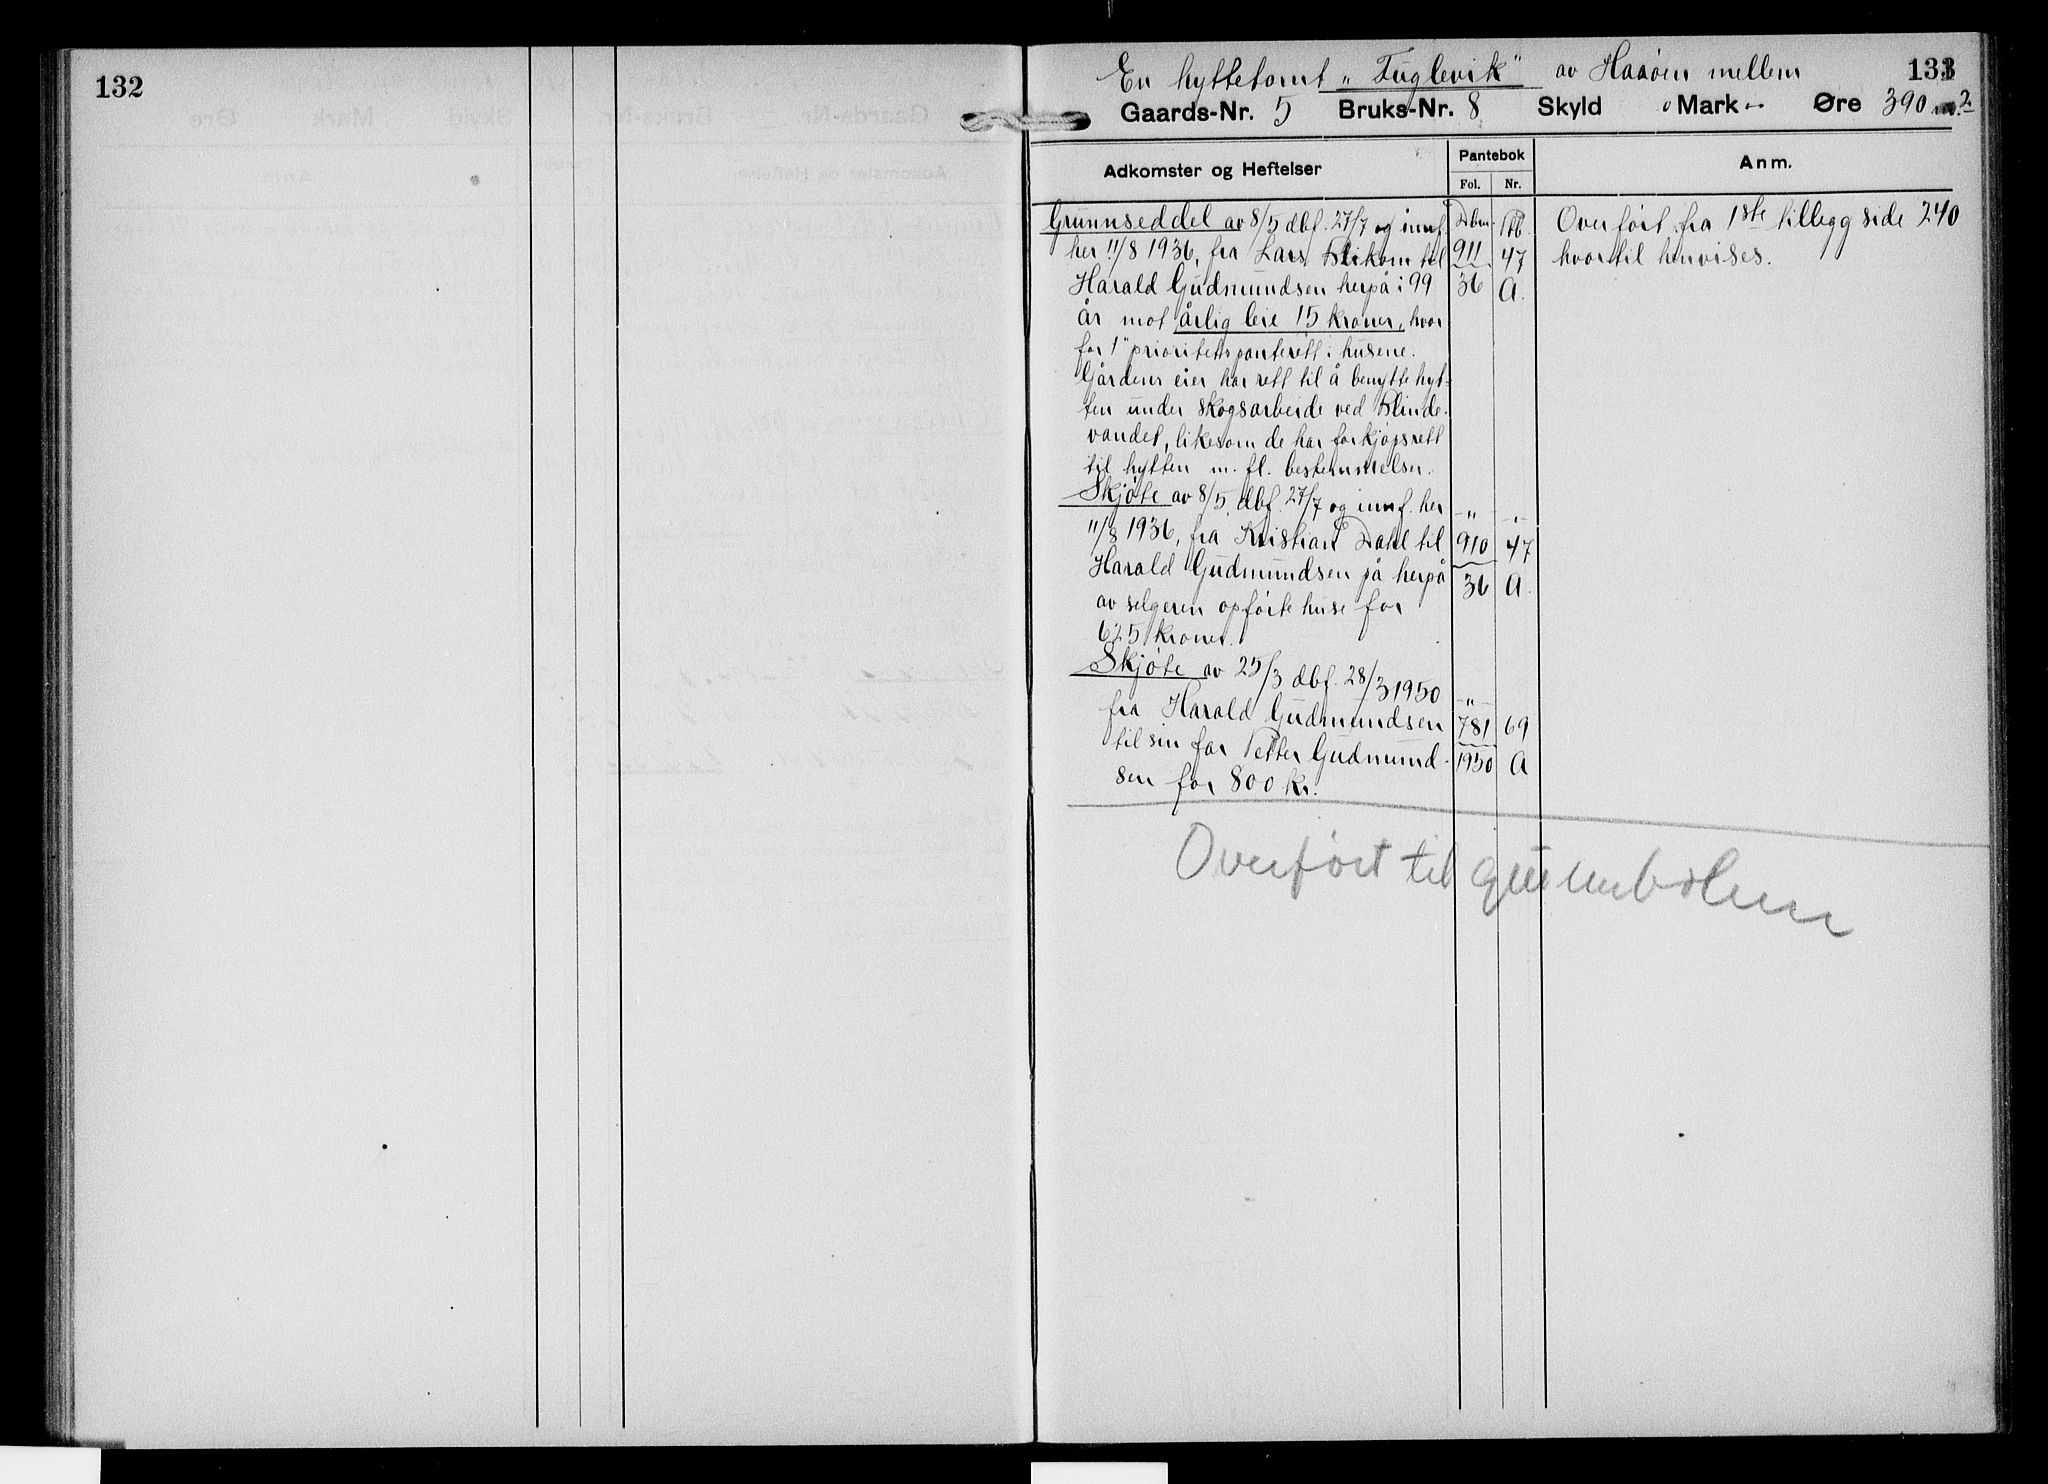 132
En hyttetomt „Fuglevik" av Haaøen mellem
133
Gaards-Nr. 5 Bruks-Nr. 8 Skyld Mark Øre 390 m.2
Adkomster og Heftelser
Pantebok
Fol. Nr.
Anm.
Grunnseddel av 8/5 dbf. 27/7 og innf.
her 11/8 1936, fra Lars til
Harald Gudmundsen herpå i 99
år mot årlig leie 15 kroner, hvor
for 1" prioritets panterett i husene.
Gårdens eier har rett til å benytte hyt-
ten under skogsarbeide ved Blinde-
vandet, likesom de har forkjøpsrett
til hytten m. fl. bestemmelser.
Skjøte av 8/5 dbf. 27/7 og innf. her
11/8 1936, fra Kristian Dahl til
Harald Gudmundsen på herpå
av selgeren opførte huse for
625 kroner.
Skjøte av 25/3 dbf. 28/3 1950
fra Harald Gudmundsen
til sin far Petter Gudmund-
sen for 800 kr.
Dbm. Ptb.
911 47
36 A.
„
910 47
36 A.
„
781 69
1950 A
Overført fra 1ste tillegg side 240
hvortil henvises.
Overført til